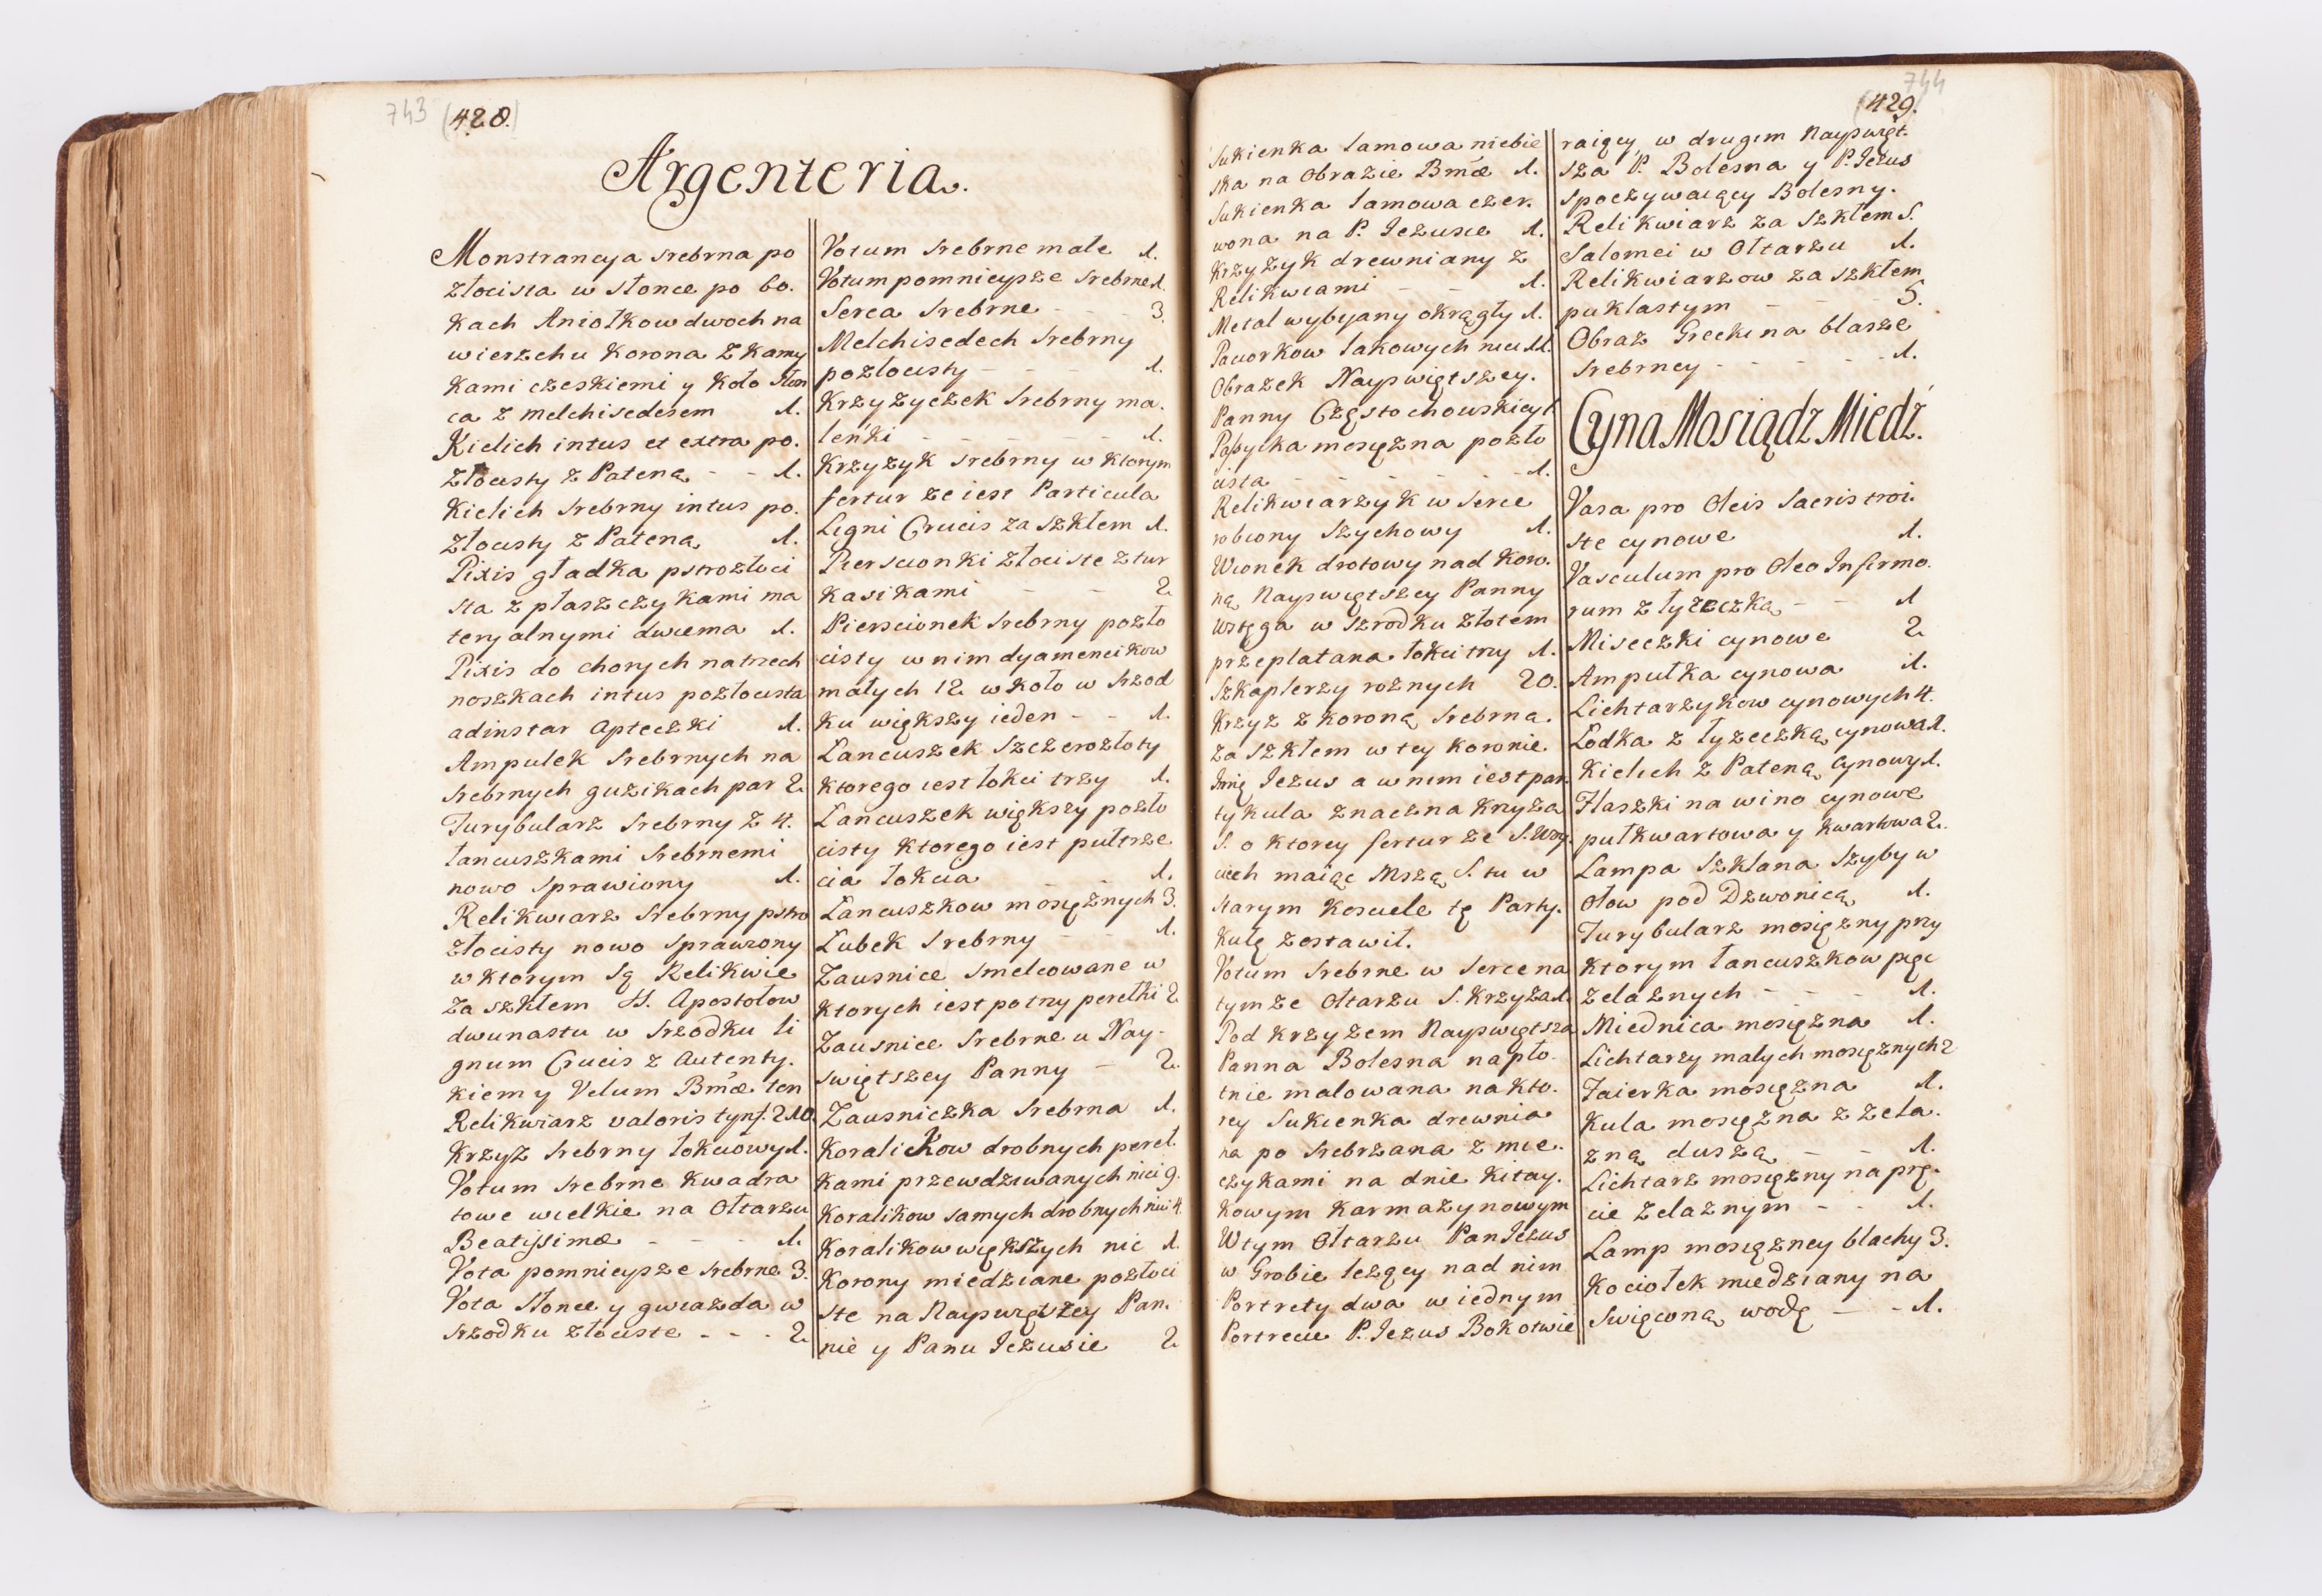 743 (428.)
Argenteria.
Monstrancya srebrna po
złocista w słonce po bo.
kach Aniołkow dwoch na
wierzchu Korona z kamy
kami czeskiemi y koło słon
ca z melchisedesem 1.
Kielich intus et extra po.
złocisty z Pateną - - 1.
Kielich srebrny intus po.
złocisty z Pateną 1.
Pixis gładka pstrozłoci
sta z płaszczykami ma
teryalnymi dwiema 1.
Pixis do chorych na trzech
noszkach intus pozłocista
adinstar apteczki 1.
Ampulek srebrnych na
srebrnych guzikach par 2
Turybularz srebrny z 4.
łancuszkami srebrnemi
nowo sprawiony 1.
Relikwiarz srebrny pstro
złocisty nowo sprawiony
w ktorym są Relikwie
za szkłem SS. Apostołow
dwunastu w srzodku li
gnum Crucis z autenty.
kiem y Velum Bmæ ten
Relikwiarz valoris tynf. 210.
Krzyz srebrny łokciowy 1.
Votum srebrne kwadra
towe wielkie na Ołtarzu
Beatissimæ - - - 1.
Vota pomnieysze srebrne 3.
Vota słonce y gwiazda w
srzodku złociste - - - 2
Votum srebrne małe 1.
Votum pomnieysze srebrne 1.
Serca srebrne - - - 3.
Melchisedech srebrny
pozłocisty - - - 1.
Krzyzyczek srebrny ma.
leńki - - - - - 1.
Krzyzyk srebrny w ktorym
fertur ze iest Particula
Ligni Crucis za szkłem 1.
Pierscionki złociste z tur
kasikami - - 2
Pierscionek srebrny pozło
cisty w nim dyamencikow
małych 12 w koło w srzod
ku większy ieden - - 1.
Lancuszek szczerozłoty
ktorego iest łokci trzy 1.
Lancuszek większy pozło
cisty ktorego iest pułtrze
cia łokcia - - 1.
Lancuszkow mosięznych 3.
Lubek srebrny - - 1.
Zausnice smelcowane w
ktorych iest po trzy perełki 2
Zausnice srebrne u Nay-
swiętszey Panny - 2.
Zausniczka srebrna 1.
Koralikow drobnych pereł.
kami przewdziwanych nici 9.
Koralikow samych drobnych nici 4.
Koralikow większych nic 1.
Korony miedziane pozłoci
ste na Nayswiętszey Pan.
nie y Panu Jezusie 2
744
(429.)
Sukienka lamowa niebie
ska na Obrazie Bmæ 1.
Sukienka lamowa czer.
wona na P. Jezusie 1.
Krzyzyk drewniany z
Relikwiami - - 1.
Metal wybyany okrągły 1.
Paciorkow lakowych nici 11.
Obrazek Nayswiętszey.
Panny Częstochowskicyt
mosięzna pozło
cista - - - - - 1.
Relikwiarzyk w serce
robiony szychowy 1.
Wionek drotowy nad Koro.
ną Nayswiętszey Panny
wstęga w szrodku złotem
przeplatana łokci trzy 1.
Szkaplerzy roznych 20.
Krzyz z koroną srebrną.
za szkłem w tey Koronie
Imię Jezus a w nim iest par.
tykula znaczna Krzyza
S. o ktorey fertur ze S. Woy.
ciech maiąc Mszą S. tu w
starym Kosciele tę Party.
kułę zostawił.
Votum srebrne w serce na
tymze Ołtarzu S. Krzyza 1.
Pod krzyzem Nayswiętsza
Panna Bolesna na pło.
tnie malowana na kto.
rey Sukienka drewnia
na po srebrzana z mie.
czykami na dnie kitay.
kowym karmazynowym
W tym Ołtarzu Pan Jezus
w Grobie lezący nad nim
Portrety dwa w iednym
Portrecie P. Jezus Bok otwie
raiący, w drugim Nayswięt.
sza P. Bolesna y P. Jezus
spoczywaiący Bolesny.
Relikwiarz za szkłem S.
Salomei w Ołtarzu 1.
Relikwiarzow za szkłem
puklastym - - - 5.
Obraz Grecki na blasze
srebrney - - - - - 1.
Cyna Mosiądz Miedź.
Vasa pro Oleis Sacris troi.
ste cynowe 1.
Vasculum pro Oleo Infirmo.
rum z łyzeczką - - 1
Miseczki cynowe 2
Ampułka cynowa 1.
Lichtarzykow cynowych 4.
Lodka z łyzeczką cynowa 1.
Kielich z Pateną Cynowy 1.
Flaszki na wino cynowe
pułkwartowa y kwartowa 2.
Lampa szklana szyby w
ołow pod Dzwonicą 1.
Turybularz mosięzny przy
ktorym łancuszkow pięc
zelaznych - - - 1.
Miednica mosięzna 1.
Lichtarzy małych mosięznych 2
Faierka mosięzna 1.
Kula mosięzna z zela.
zną duszą - - 1.
Lichtarz mosięzny na prę.
cie zelaznym - - 1.
Lamp mosięzney blachy 3.
Kociołek miedziany na
Swięconą wodę - - 1.